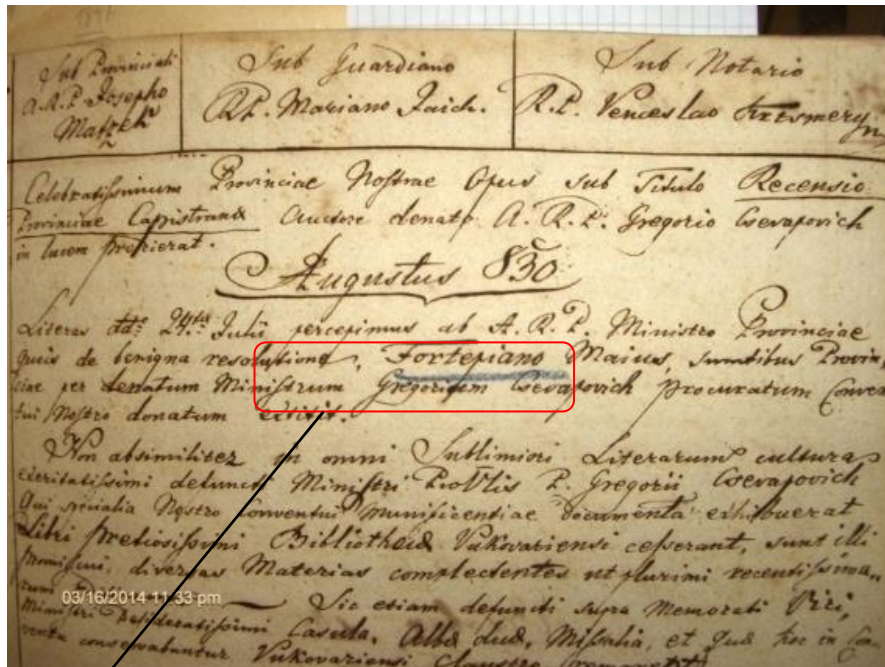 Sub Provinciali
A.R.P. Josepho
Matzek
Sub Guardiano
R.P. Mariano Jaich.
Sub Notario
R.P. Venceslao
Celebratissimum Provinciae Nostrae Opus sub Titulo Recensio
Provinciae Capistranae Auctore denato A.R.P. Gregorio Csevapovich
in lucem prodierat.
Augustus 830
Literas ddto 24ta Julii percepimus ab A.R.P. Ministro Provinciae
queis de benigna resolutione, Fortepiano Maius, sumtibus Provin,,
ciae per denatum Ministrum Gregorium Csevapovich procuratum Conven
tui Nostro donatum extitit.
Non absimiliter in omni Sublimiori Literarum cultura
exercitatissimi defuncti Ministri P. Gregorii Csevapovich
Qui specialia Nostro Conventui munificentiae documenta exhibuerat
Libri pretiosissimi Bibliothecae Vukovariensi cesserant, sunt illi
promiscui, diversas Materias complectentes ut plurimi recentissima,,
Sic etiam defuncti supra Memorati Viri,
desideratissimi Casula, Albae duae, Missalia, et quae hoc in
conservabantur Vukovariensi Claustro
03/16/2014 11:33 pm